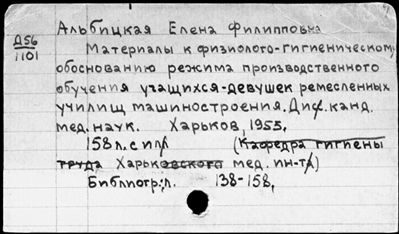 Альбицкая Елена Филипповна
Д56
1101
Материалы к физиолого-гигиеническому
обоснованию режима производственного
обучения учащихся-девушек ремесленных
училищ машиностроения. Дис. канд.
мед. наук. Харьков, 1955.
158 л. с илл (Кафедра гигиены
труда Харьковского мед. ин-та)
Библиогр: л. 138-158.